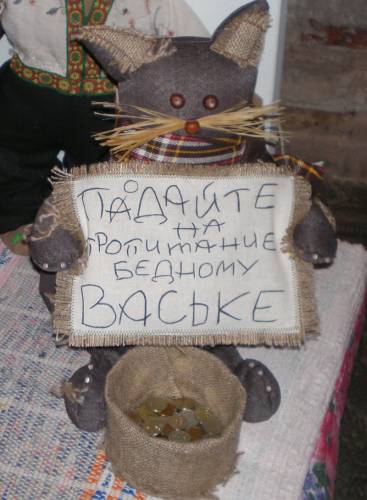 о
ПАДАЙТЕ
НА
ПРОПИТАНИЕ
БЕДНОМУ
ВАСЬКЕ